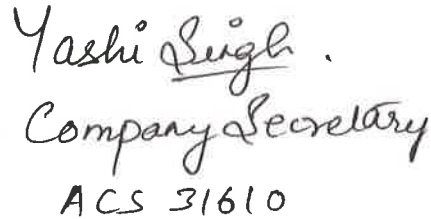 Yashi Singh.
Company Secretary
ACS 31610